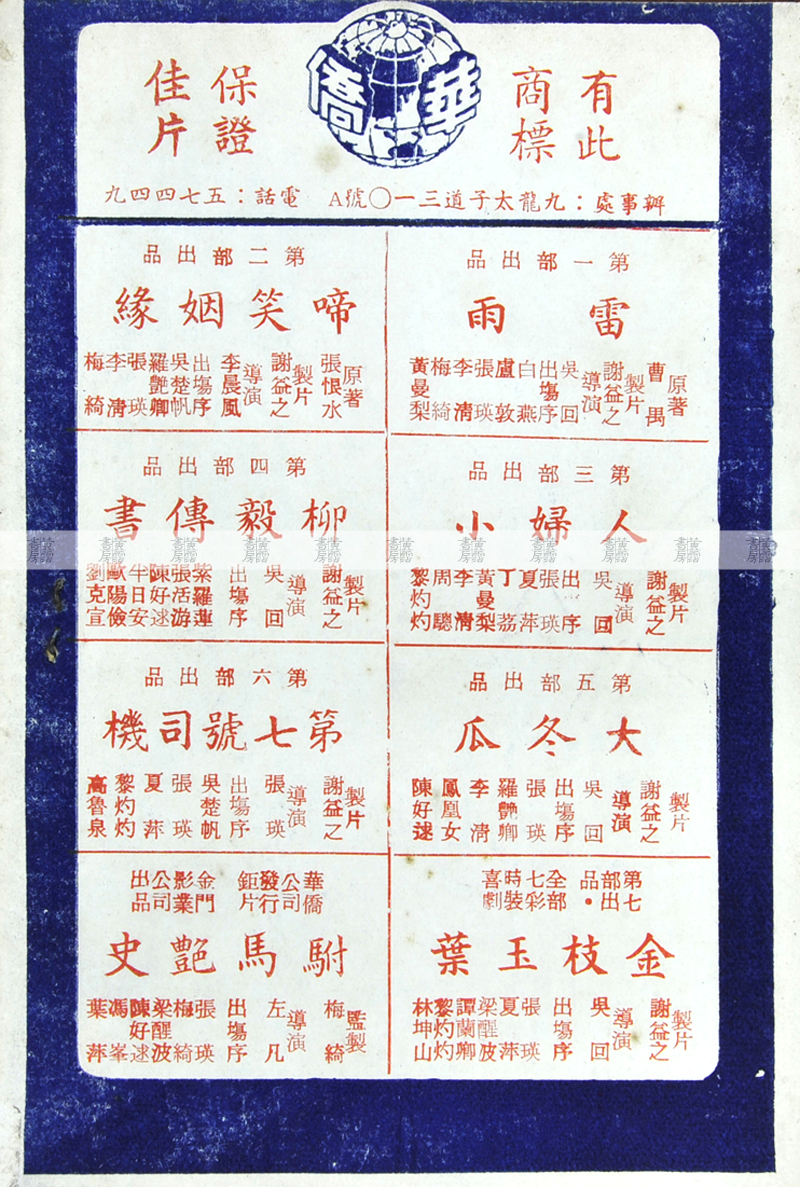 有此
商標
華僑
保證
佳片
辦事處：九龍太子道三一〇號A　電話：五七四四九
第一部出品
雷雨
原著
曹禺
製片
謝益之
導演
吳回
出塲序
白燕
盧敦
張瑛
李清
梅綺
黃曼梨
第二部出品
啼笑姻緣
原著
張恨水
製片
謝益之
導演
李晨風
出塲序
吳楚帆
羅艷卿
張瑛
李清
梅綺
第三部出品
人婦小
製片
謝益之
導演
吳回
出序
張瑛
夏萍
丁荔
黃曼梨
李清
周驄
黎灼灼
第四部出品
柳毅傳書
製片
謝益之
導演
吳回
出塲序
紫羅蓮
張活游
陳好逑
半日安
歐陽儉
劉克宣
第五部出品
大冬瓜
製片
謝益之
導演
吳回
出塲序
張瑛
羅艷卿
李清
鳳凰女
陳好逑
第六部出品
第七號司機
製片
謝益之
導演
張瑛
出塲序
吳楚帆
張瑛
夏萍
黎灼灼
高魯泉
第七
部出
品・
全部
七彩
時裝
喜劇
金枝玉葉
製片
謝益之
導演
吳回
出塲序
張瑛
夏萍
梁醒波
譚蘭卿
黎灼灼
林坤山
華僑
公司
發行
鉅片
金門
影業
公司
出品
駙馬艷史
監製
梅綺
導演
左凡
出塲序
張瑛
梅綺
梁醒波
陳好逑
馮峯
葉萍